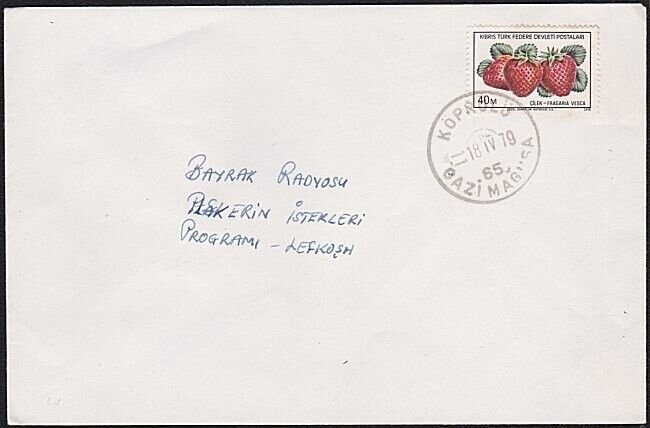 KIBRIS TÜRK FEDERE DEVLETİ POSTALARI
40M
ÇİLEK - FRAGARIA VESCA
KÖPRÜLÜ
18 IV 79
65.
GAZİ MAĞUSA
BAYRAK RADYOSU
ASKERİN İSTEKLERİ
PROGRAMI - LEFKOŞA